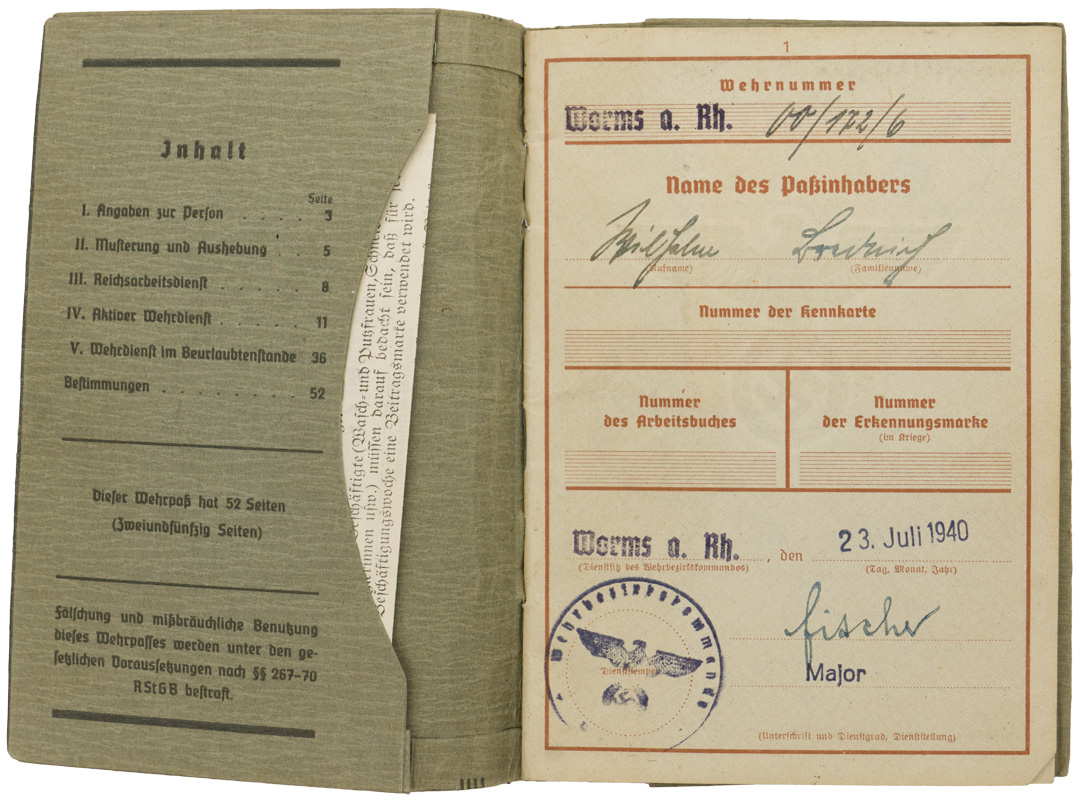 Inhalt
Seite
I. Angaben zur Person . . . . . 3
II. Musterung und Aushebung . 5
III. Reichsarbeitsdienst . . . . . . 8
IV. Aktiver Wehrdienst . . . . . . 11
V. Wehrdienst im Beurlaubtenstande 36
Bestimmungen . . . . . . . . . 52
Dieser Wehrpaß hat 52 Seiten
(Zweiundfünfzig Seiten)
Fälschung und mißbräuchliche Benutzung
dieses Wehrpasses werden unter den ge-
setzlichen Voraussetzungen nach §§ 267–70
RStGB bestraft.
schäftigte (Wasch- und Putzfrauen, Schnei
erinnen usw.) müssen darauf bedacht sein, daß für
Beschäftigungswoche eine Beitragsmarke verwendet wird.
1
Wehrnummer
Worms a. Rh. 00/172/6
Name des Paßinhabers
Wilhelm
(Rufname) (Familienname)
Nummer der Kennkarte
Nummer
des Arbeitsbuches
Nummer
der Erkennungsmarke
(im Kriege)
Worms a. Rh., den 23. Juli 1940
(Dienstsitz des Wehrbezirkskommandos) (Tag, Monat, Jahr)
Wehrbezirkskommando
Dienststempel
Fischer
Major
(Unterschrift und Dienstgrad, Dienststellung)